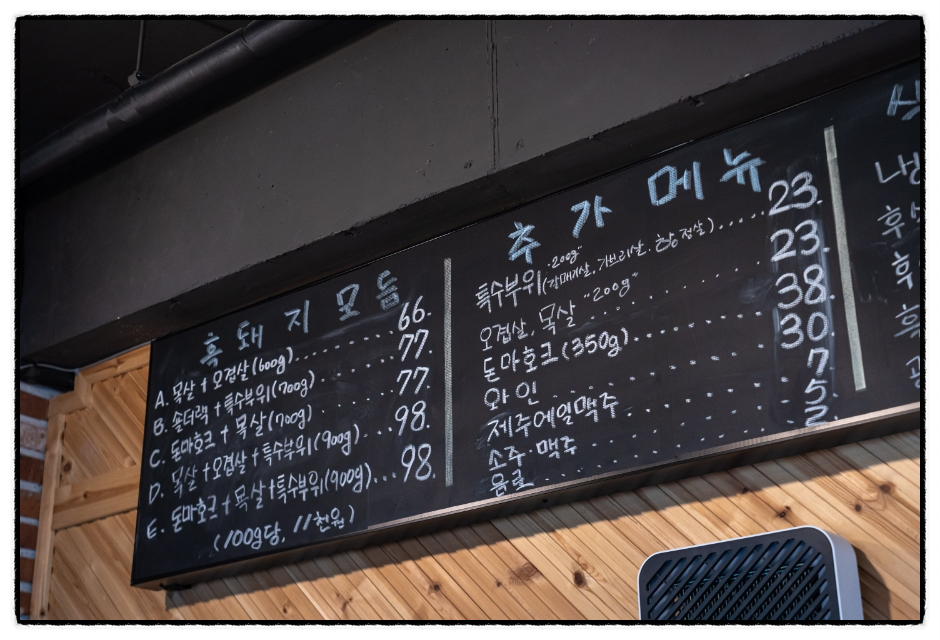 흑돼지 모듬
A. 목살 + 오겹살 (600g) ...... 66.
B. 숄더랙 + 특수부위 (700g) ..... 77.
C. 돈마호크 + 목살 (700g) ..... 77.
D. 목살 + 오겹살 + 특수부위 (900g) ... 98.
E. 돈마호크 + 목살 + 특수부위 (900g) ... 98.
(100g당, 11천원)
추가 메뉴
특수부위 "200g" (갈매기살, 가브리살, 항정살) ..... 23.
오겹살, 목살 "200g" ....... 23.
돈마호크 (350g) ......... 38.
와인 ......... 30.
제주에일맥주 ......... 7.
소주·맥주 ......... 5.
음료 ......... 2.